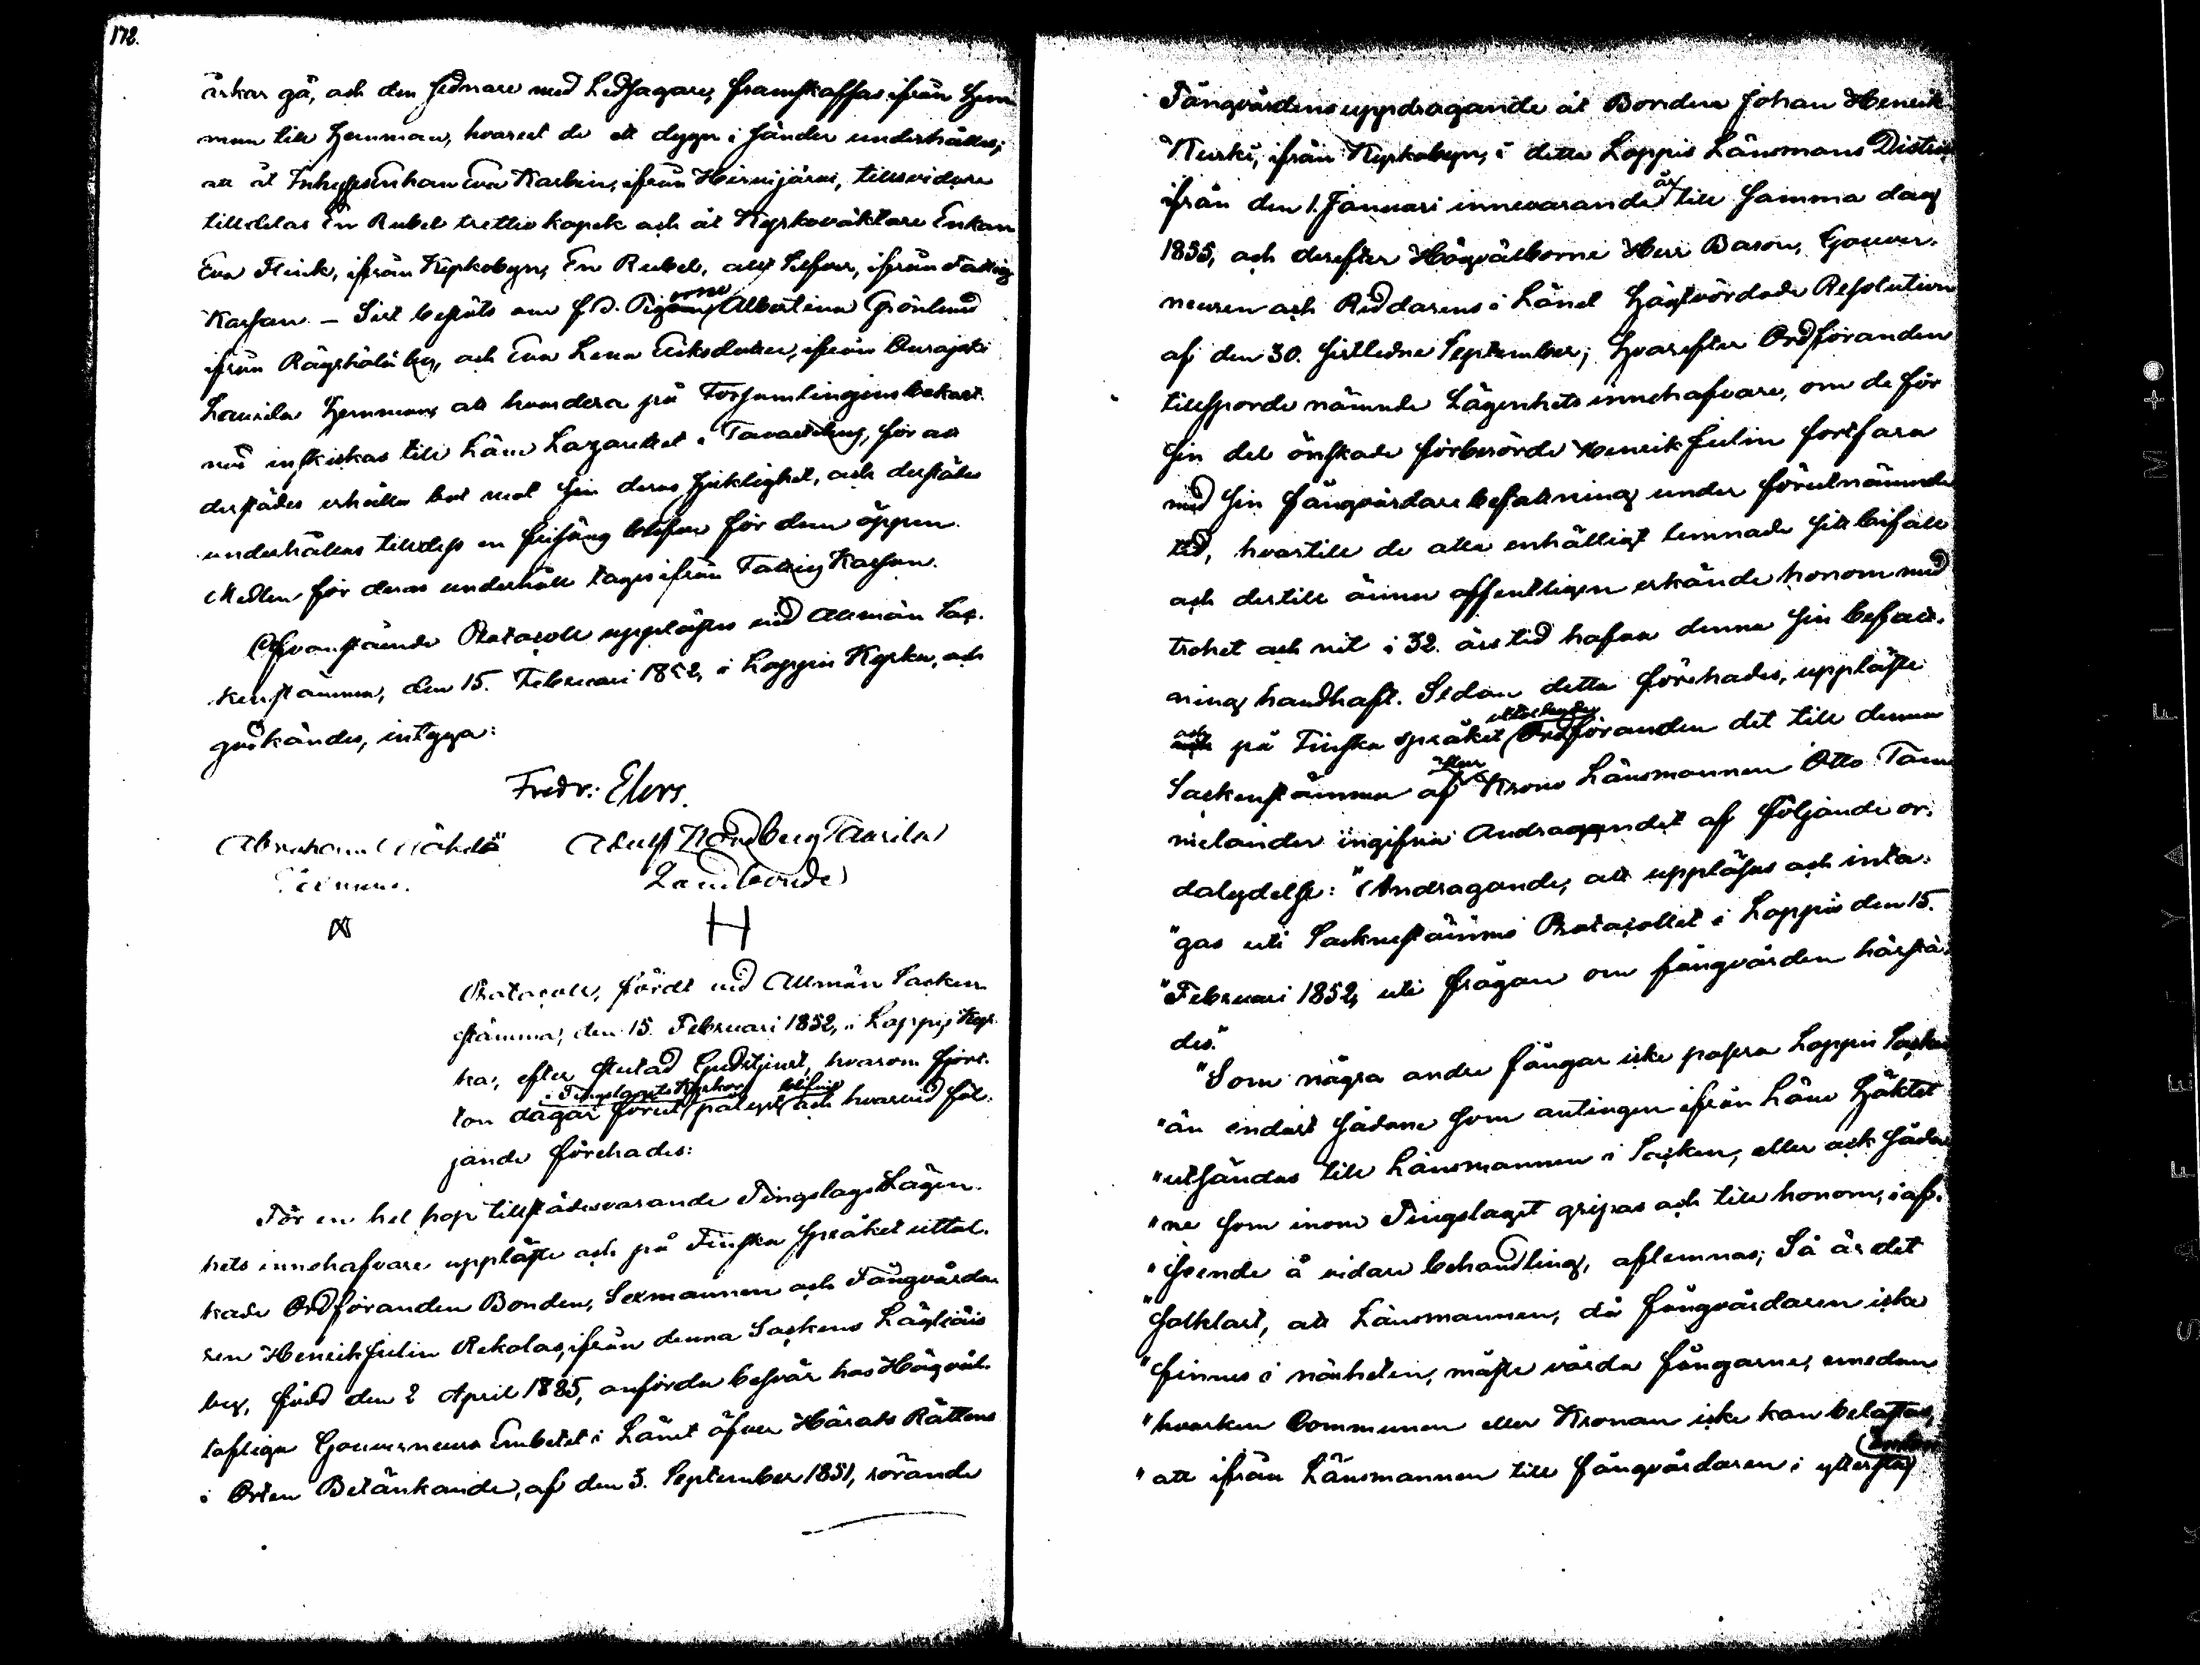 172.
årkar gå, och den sednare med Ledsagare, framskaffas ifrån Hem
man till Hemman, hvarest de ett dygn i sänder underhålles;
att åt Inhysesenkan Eva Karbin, ifrån Hirvijärvi, tillsvidare
tilldelas En Rubel trettio kopek och åt Kyrkoväktare Enkan
Eva Flink, ifrån Kyrkobyn, En Rubel, allt Silfver, ifrån Fattig
Kassan. – Sist beslöts om f. d. Pigorne Albertina Grönlund
ifrån Räyskälä by, och Eva Lena Eriksdotter, ifrån Ourajoki
Laurila Hemman, att hvardera på Församlingens bekost
nad inskickas till Läns Lazarettet i Tavastehus, för att
derstädes erhålla bot mot sin deras sjuklighet, och derstädes
underhållas tilldess en frisäng blifver för dem öppen.
Medlen för deras underhåll tages ifrån Fattig Kassan.
Ofvanstående Protocoll upplästes vid Allmän Soc-
kenstämma, den 15. Februari 1852, i Loppis Kyrka, och
godkändes, intyga:
Fredr: Elers.
Abraham
Adolf Nordberg Taurila
Landbonde
H
Protocoll, fördt vid Allmän Socken
stämma, den 15. Februari 1852, i Loppis Kyr-
ka, efter slutad Gudstjenst, hvarom fjor-
i Tingslagets Kyrkor blifvit
ton dagar förut pålyst och hvarvid föl-
jande förehades:
För en hel hop tillstädesvarande Tingslags Lägen-
hets innehafvare uppläste och på Finska språket uttol-
kade Ordföranden Bonden, Sexmannen och Fångvårda
ren Henrik Julin Rekolas, ifrån denna Sockens Läyliäis
by, född den 2 April 1885, anförda besvär hos Högväl-
taflige Gouverneurs Embetet i Länet öfver Härads Rättens
i Orten Betänkande, af den 3. September 1851, rörande
Fångvårdens uppdragande åt Bonden Johan Henrik
Kurki, ifrån Kyrkobyn, i detta Loppis Länsmans Distric
ifrån den 1. Januari innevarande år till samma dag
1855, och derefter Högvälborne Herr Baron, Gouver-
neuren och Riddarens i Länet högtvördade Resolution
af den 30. sistledne September; hvarefter Ordföranden
tillsporde nämnde Lägenhets innehafvare, om de för
sin del önskade förberörde Henrik Julin fortfara
med sin fångvårdare befattning under förutnämnde
tid, hvartill de alla enhälligt lemnade sitt bifall
och dertill ännu offentligen erkände honom med
trohet och nit i 32. års tid hafva denna sin befatt-
ning handhaft. Sedan detta förehades, uppläste
och på Finska språket uttolkade Ordföranden det till denna
Sockenstämma af Krono Länsmannen Otto Tam
melander ingifna Andragandet af följande or-
dalydelse: "Andragande, att uppläsas och inta-
"gas uti Sockenstämmo Protocollet i Loppis den 15.
"Februari 1852, uti frågan om fångvården härstä-
des."
"Som några andra fångar icke passera Loppis Socken
"än endast sådane som antingen ifrån Läns Häktet
"utsändas till Länsmannen i Socken, eller ock såda
"ne som inom Tingslaget gripas och till honom, i af-
"seende å vidare behandling, aflemnas; Så är det
"solklart, att Länsmannen, då fångvårdaren icke
"finnes i närheten, måste vårda fångarne, emedan
"hvarken Communen eller Kronan icke kan belastas,
"att ifrån Länsmannen till fångvårdaren i yttersta